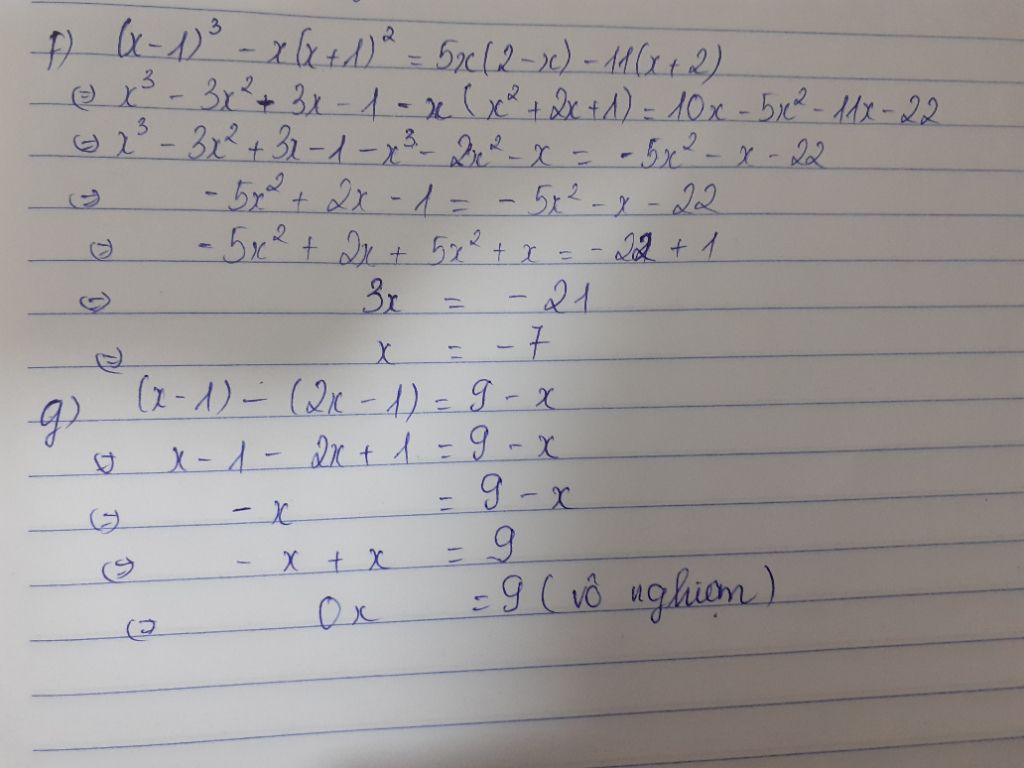 f) (x-1)³ - x(x+1)² = 5x(2-x) - 11(x+2)
⇔ x³ - 3x² + 3x - 1 - x(x² + 2x + 1) = 10x - 5x² - 11x - 22
⇔ x³ - 3x² + 3x - 1 - x³ - 2x² - x = -5x² - x - 22
⇔ -5x² + 2x - 1 = -5x² - x - 22
⇔ -5x² + 2x + 5x² + x = -22 + 1
⇔ 3x = -21
⇔ x = -7
g) (x-1) - (2x-1) = 9 - x
⇔ x - 1 - 2x + 1 = 9 - x
⇔ -x = 9 - x
⇔ -x + x = 9
⇔ 0x = 9 (vô nghiệm)